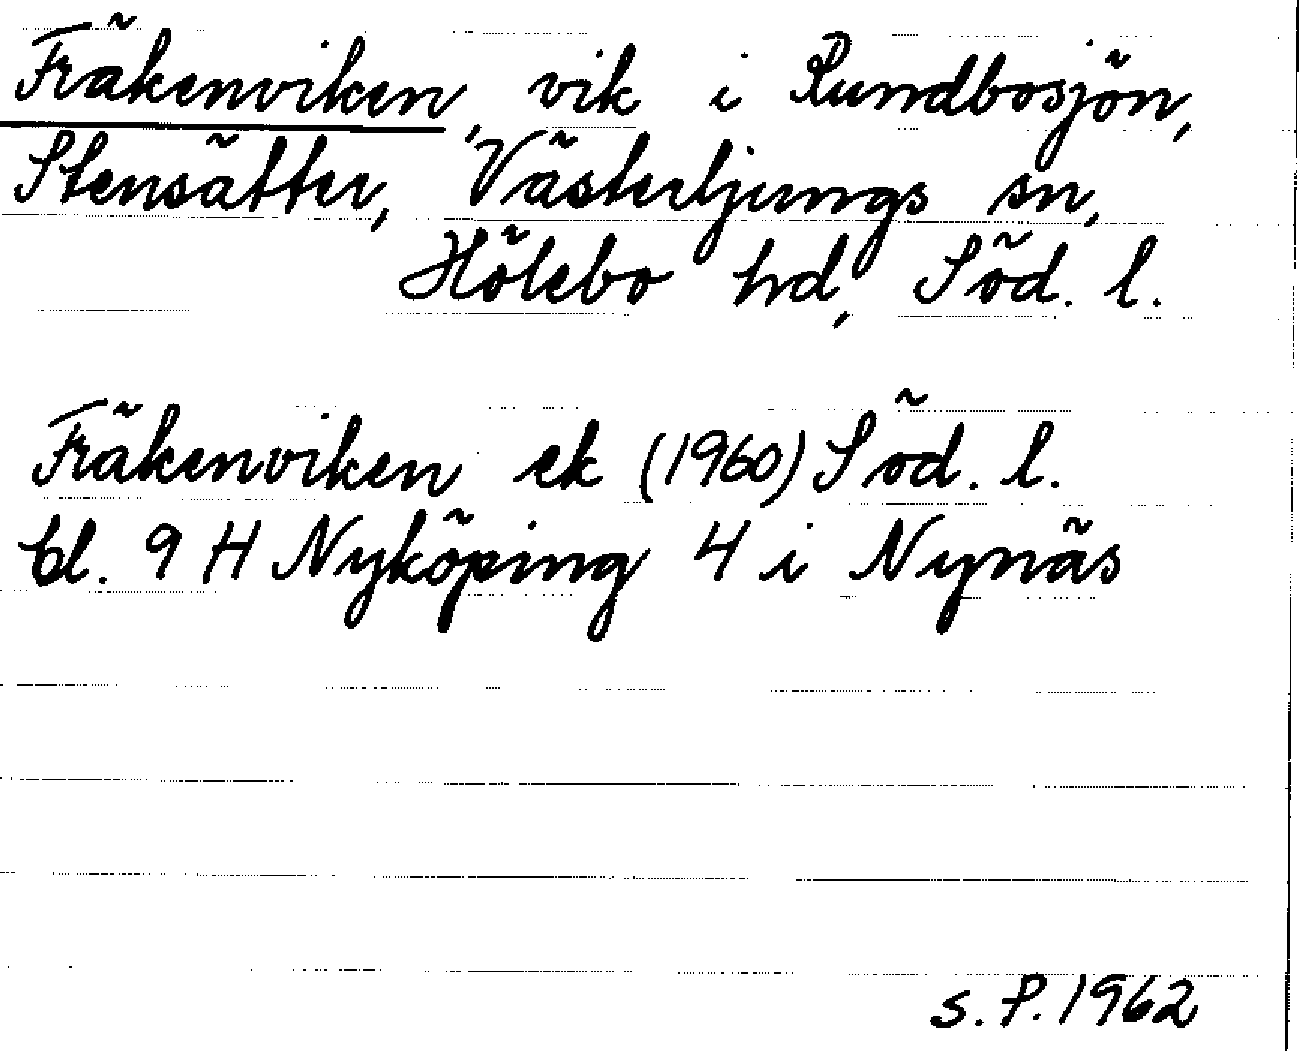 Fräkenviken, vik i Rundbosjön,
Stensätter, Västerljungs sn,
Hölebo hd, Söd. l.
Fräkenviken ek (1960) Söd. l.
bl. 9 H Nyköping 4 i Nynäs
S.P. 1962